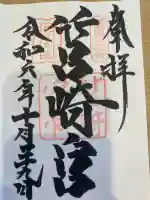 奉拝
筥崎宮
令和六年十月二十九日